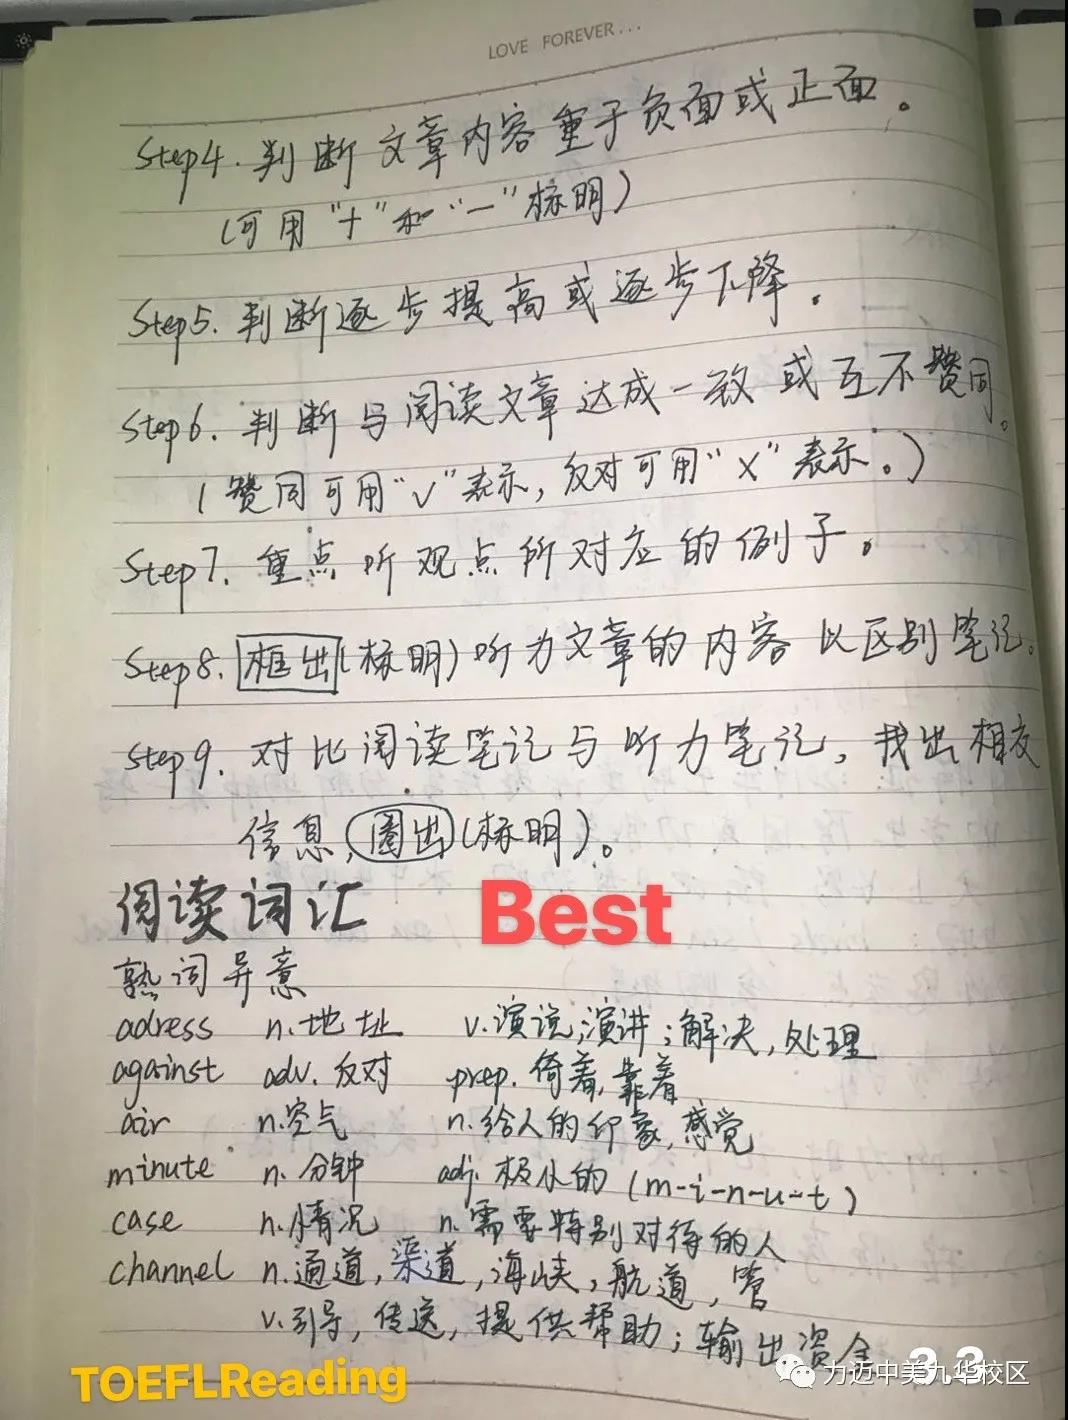 LOVE FOREVER...
Step4. 判断文章内容重于负面或正面。
(可用“+”和“一”标明)
Step5. 判断逐步提高或逐步下降.
Step6. 判断与阅读文章达成一致或互不赞同。
(赞同可用“√”表示,反对可用“X”表示。)
Step7. 重点听观点所对应的例子。
Step8. 框出(标明)听力文章的内容以区别笔记。
Step9. 对比阅读笔记与听力笔记,找出相反
信息,圈出(标明)。
阅读词汇
Best
熟词异意
adress n.地址 v.演说,演讲;解决,处理
against adv.反对 prep.倚着,靠着
air n.空气 n.给人的印象,感觉
minute n.分钟 adj.极小的(m-i-n-u-t)
case n.情况 n.需要特别对待的人
channel n.通道,渠道,海峡,航道,管
v.引导,传送,提供帮助;输出资金
TOEFLReading
3.3
力迈中美九华校区